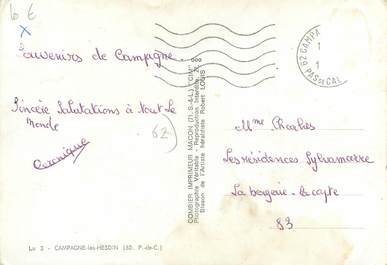 6 €
x
Souvenirs de Campagne.
Sincère Salutations à tout le
monde
Veronique
62
62 CAMPA
1
1
PAS DE CAL
COMBIER IMPRIMEUR MACON (71. S.-&-L.) "CIM"
Photographie Véritable - Reproduction Interdite
Blason de l'Artiste héraldiste Robert LOUIS
Mme Charles
Les résidences Sylvamarre
La bergerie - la capte
83
Lv 3 - CAMPAGNE-les-HESDIN (62. P.-de-C.)